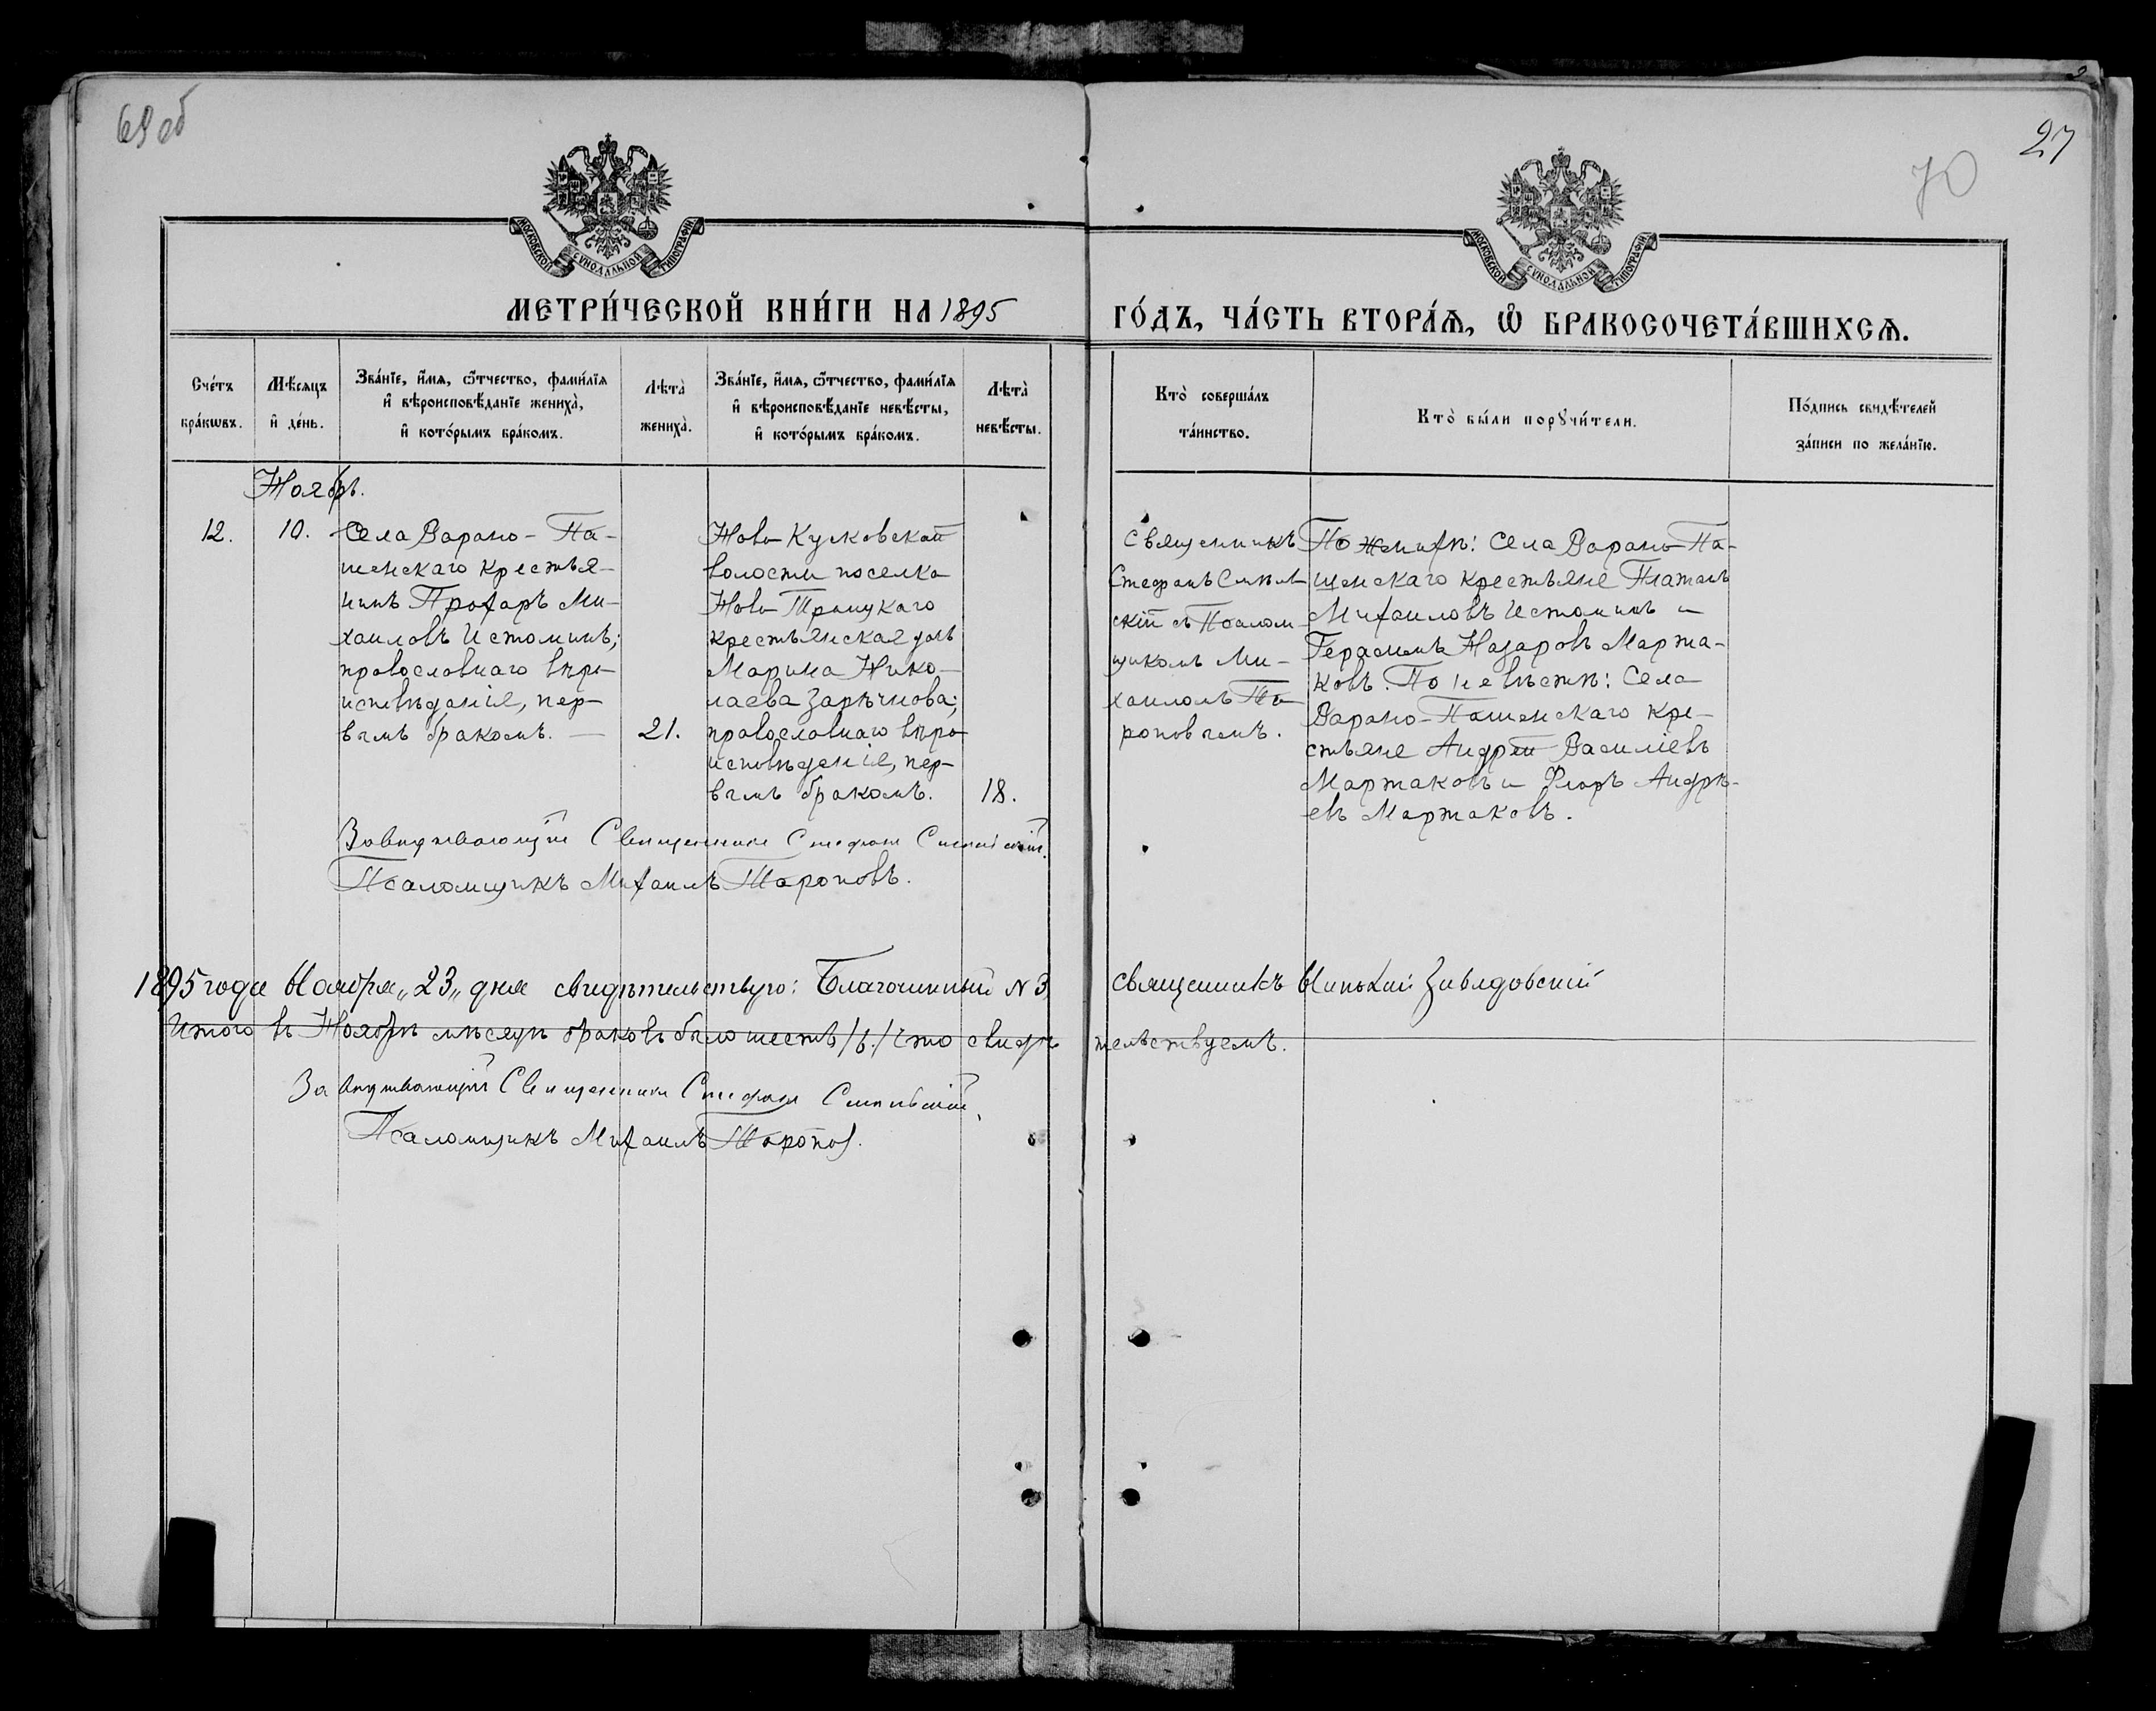 69 об
27
70
МОСКОВСКОЙ СѴНОДАЛЬНОЙ ТИПОГРАФІИ
МОСКОВСКОЙ СѴНОДАЛЬНОЙ ТИПОГРАФІИ
МЕТРИ́ЧЕСКОЙ КНИ́ГИ НА 1895
ГО́ДЪ, ЧА́СТЬ ВТОРА́Ѧ, Ѽ БРАКОСОЧЕТА́ВШИХСѦ.
Сче́тъ
бра́кѡвъ.
Мѣ́сѧцъ
и҆ де́нь.
Зва́нїе, и҆́мѧ, ѻ҆́тчество, фами́лїѧ
и҆ вѣроисповѣ́данїе жениха̀,
и҆ кото́рымъ бра́комъ.
Лѣта̀
жениха̀.
Зва́нїе, и҆́мѧ, ѻ҆́тчество, фами́лїѧ
и҆ вѣроисповѣ́данїе невѣ́сты,
и҆ кото́рымъ бра́комъ.
Лѣта̀
невѣ́сты.
Кто̀ соверша́лъ
та́инство.
Кто̀ бы́ли порꙋчи́тели.
По́дпись свидѣ́телей
за́писи по жела́нїю.
Ноябрь.
12.
10.
Села Варано-Па-
шенскаго крестья-
нинъ Прохоръ Ми-
хаиловъ Истоминъ;
православнаго вѣро-
исповѣданія, пер-
вымъ бракомъ. —
21.
Ново-Кусковской
волости поселка
Ново-Троицкаго
крестьянская дочь
Марина Нико-
лаева Зарѣчнова;
православнаго вѣро-
исповѣданія, пер-
вымъ бракомъ.
18.
Священникъ
Стефанъ
скій съ Псалом-
щикомъ Ми-
хаиломъ Та-
роповымъ.
По женихѣ: Села Варано-Па-
шенскаго крестьяне Платонъ
Михаиловъ Истоминъ и
Герасимъ Назаровъ Маржа-
ковъ. По невѣстѣ: Села
Варано-Пашенскаго кре-
стьяне Андрей Василіевъ
Маржаковъ и Флоръ Андрѣ-
евъ Маржаковъ.
Завѣдывающій Священникъ Стефанъ
Псаломщикъ Михаилъ Тороповъ.
1895 года Ноября „23„ дня свидѣтельствую: Благочинный N 3
священникъ Завадовскій
Итого въ Ноябрѣ мѣсяцѣ браковъ было шесть /6./ Что свидѣ-
тельствуемъ.
Завѣдывающій Священникъ Стефанъ
Псаломщикъ Михаилъ Тороповъ.